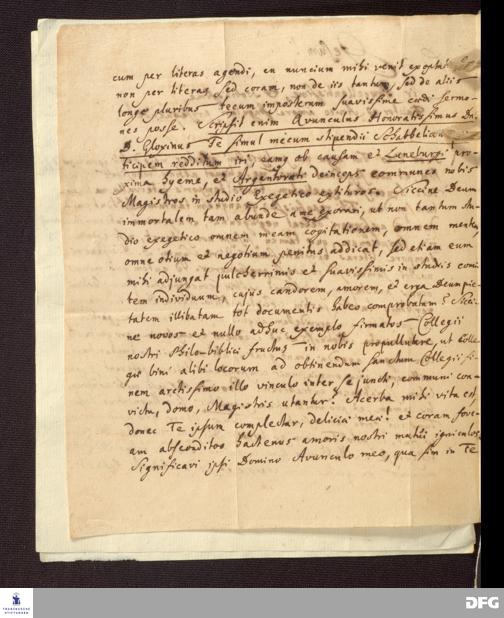 cum per literas agendi, en nuncium mihi venit exoptat
non per literas sed coram, non de iis tantum, sed de aliis
longe pluribus tecum imposterum suavissime cudi sermo-
nes posse. Scripsit enim Avunculus Honoratissimus Dn.
D. Gloxinus Te simul mecum stipendii Schabbeliani
ticipem redditum iri, eamq ob causam et Luneburgi pro-
xima hyeme, et Argentorati deinceps communes nobis
Magistros in studio Exegetico extituros. Siccine Deum
immortalem tam abunde a me exorari, ut non tantum stu-
dio exegetico omnem meam cogitationem, omnem mentem,
omne otium et negotium penitus addicat, sed etiam eum
mihi adjungat pulcherrimis et suavissimis in studiis comi-
tem individuum, cujus candorem, amorem, et erga Deum pie-
tatem illibatam tot documentis habeo comprobatam? Sicci-
ne novos et nullo adhuc exemplo firmatos Collegii
nostri Philobiblici fructus in nobis propullulare, ut Colle-
gæ bini alibi locorum ad obtinendum sanctum Collegii fi-
nem arctissimo illo vinculo inter se juncti communi con-
victu, domo, Magistris utantur? Acerba mihi vita est,
donec Te ipsum complectar, deliciæ meæ! et coram fove-
am absconditos hactenus amoris nostri mutui igniculos.
Significavi ipsi Domino Avunculo meo, qua sim in Te
FRANCKESCHE STIFTUNGEN
DFG